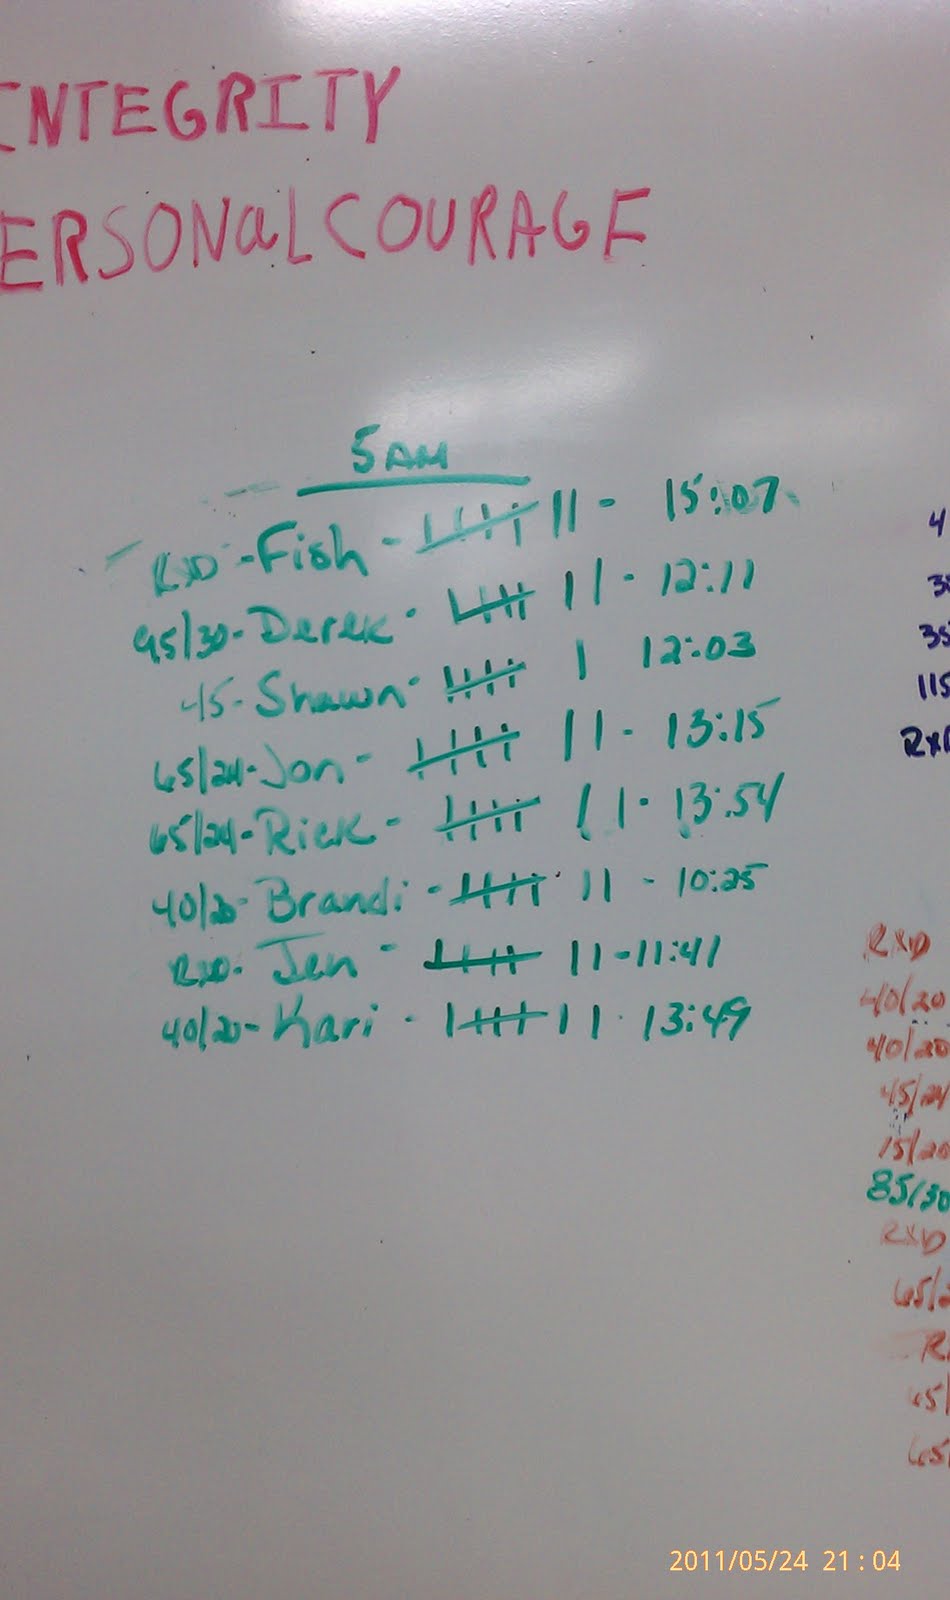 INTEGRITY
ERSONALCOURAGE
5 AM
RXD - Fish - |||| || - 15:07
95/30 - Derek - |||| || - 12:11
45 - Shawn - |||| | 12:03
65/24 - Jon - |||| || - 13:15
65/24 - Rick - |||| || - 13:54
40/20 - Brandi - |||| || - 10:25
RXD - Jen - |||| || - 11:41
40/20 - Kari - |||| || - 13:49
4
35
115
RXD
RXD
40/20
40/20
45/24
15/20
85/30
RXD
65/2
R
45/
65/
2011/05/24 21:04